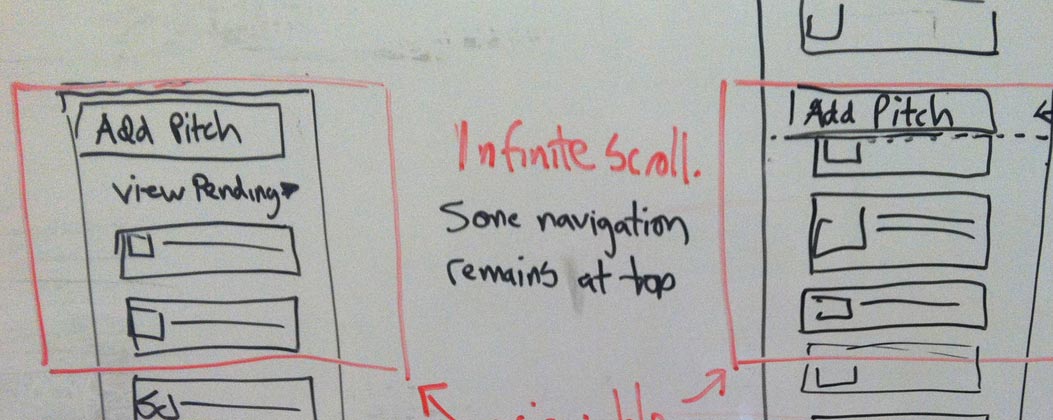 Add Pitch
View Pending
Infinite Scroll.
Some navigation
remains at top
Add Pitch